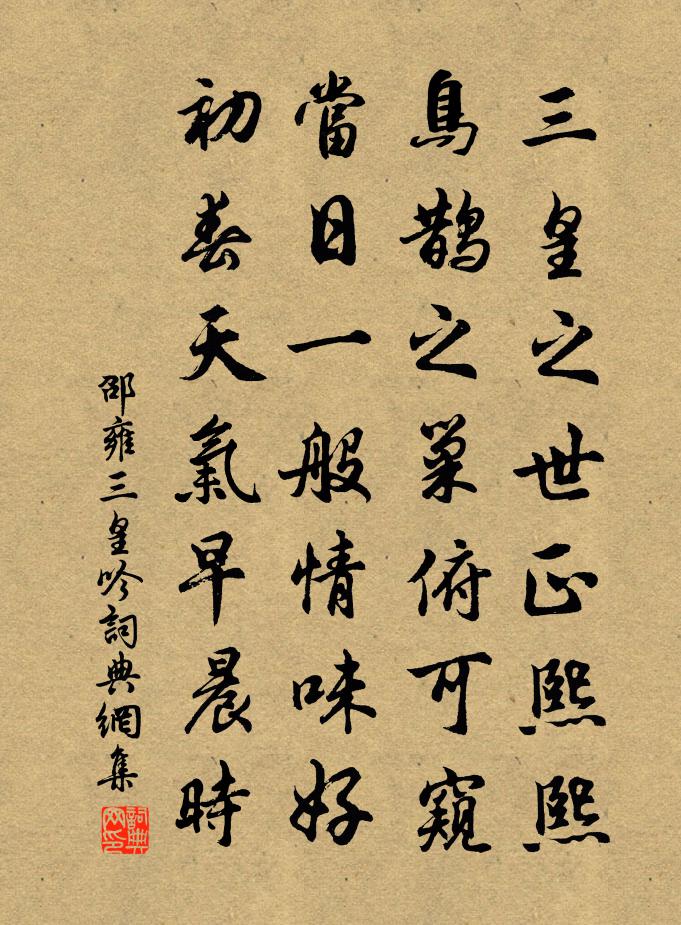 三皇之世正熙熙
鳥鵲之巢俯可窺
當日一般情味好
初春天氣早晨時
邵雍三皇吟詞典網集
詞典網印